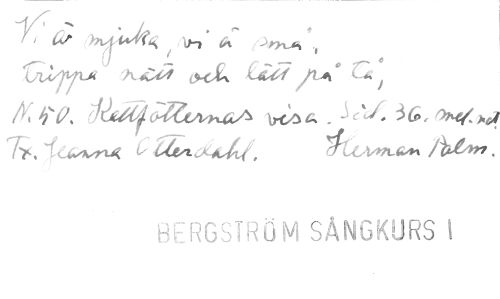 Vi är mjuka, vi ä små,
trippa nätt och lätt på tå,
N. 50. Kattfötternas visa. Sid. 36. med not
Tx. Jeanna Otterdahl. Herman Palm.
BERGSTRÖM SÅNGKURS I